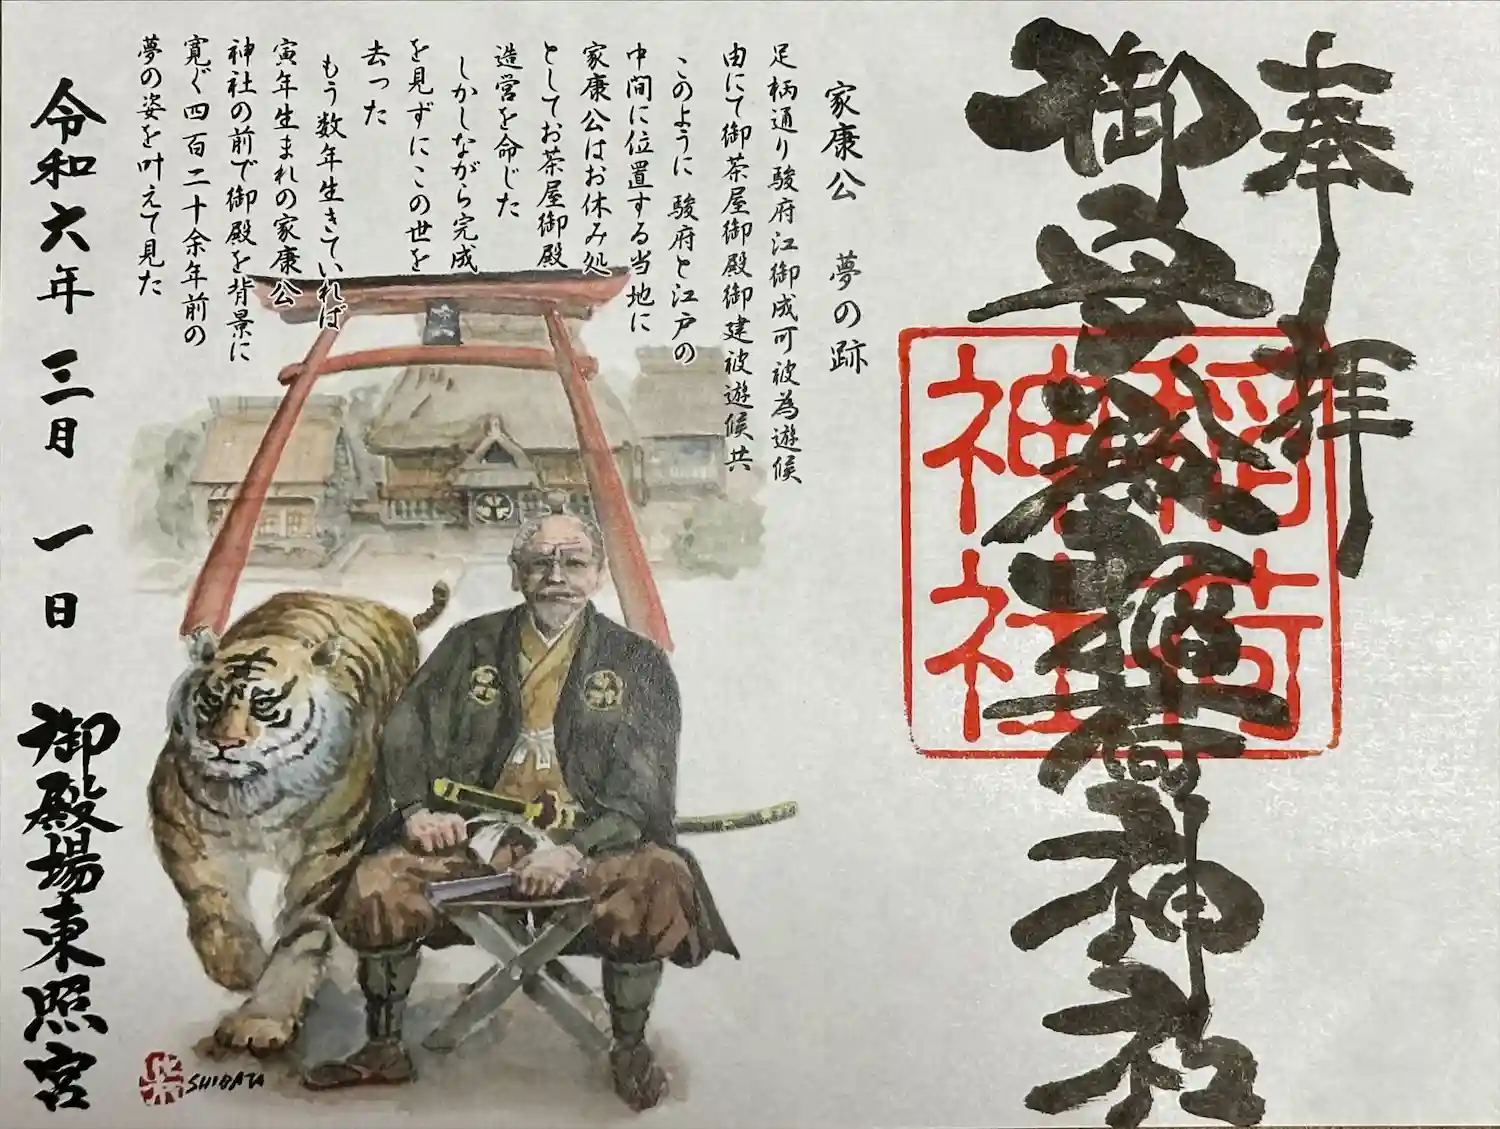 奉拝
御 稲荷神社
稲荷
神社
家康公 夢の跡
足柄通り駿府江御成可被為遊候
由にて御茶屋御殿御建被遊候共
このように 駿府と江戸の
中間に位置する当地に
家康公はお休み処
としてお茶屋御殿
造営を命じた
しかしながら完成
を見ずにこの世を
去った
もう数年生きていれば
寅年生まれの家康公
神社の前で御殿を背景に
寛ぐ四百二十余年前の
夢の姿を叶えて見た
令和六年 三月 一日 御殿場東照宮
SHIBATA